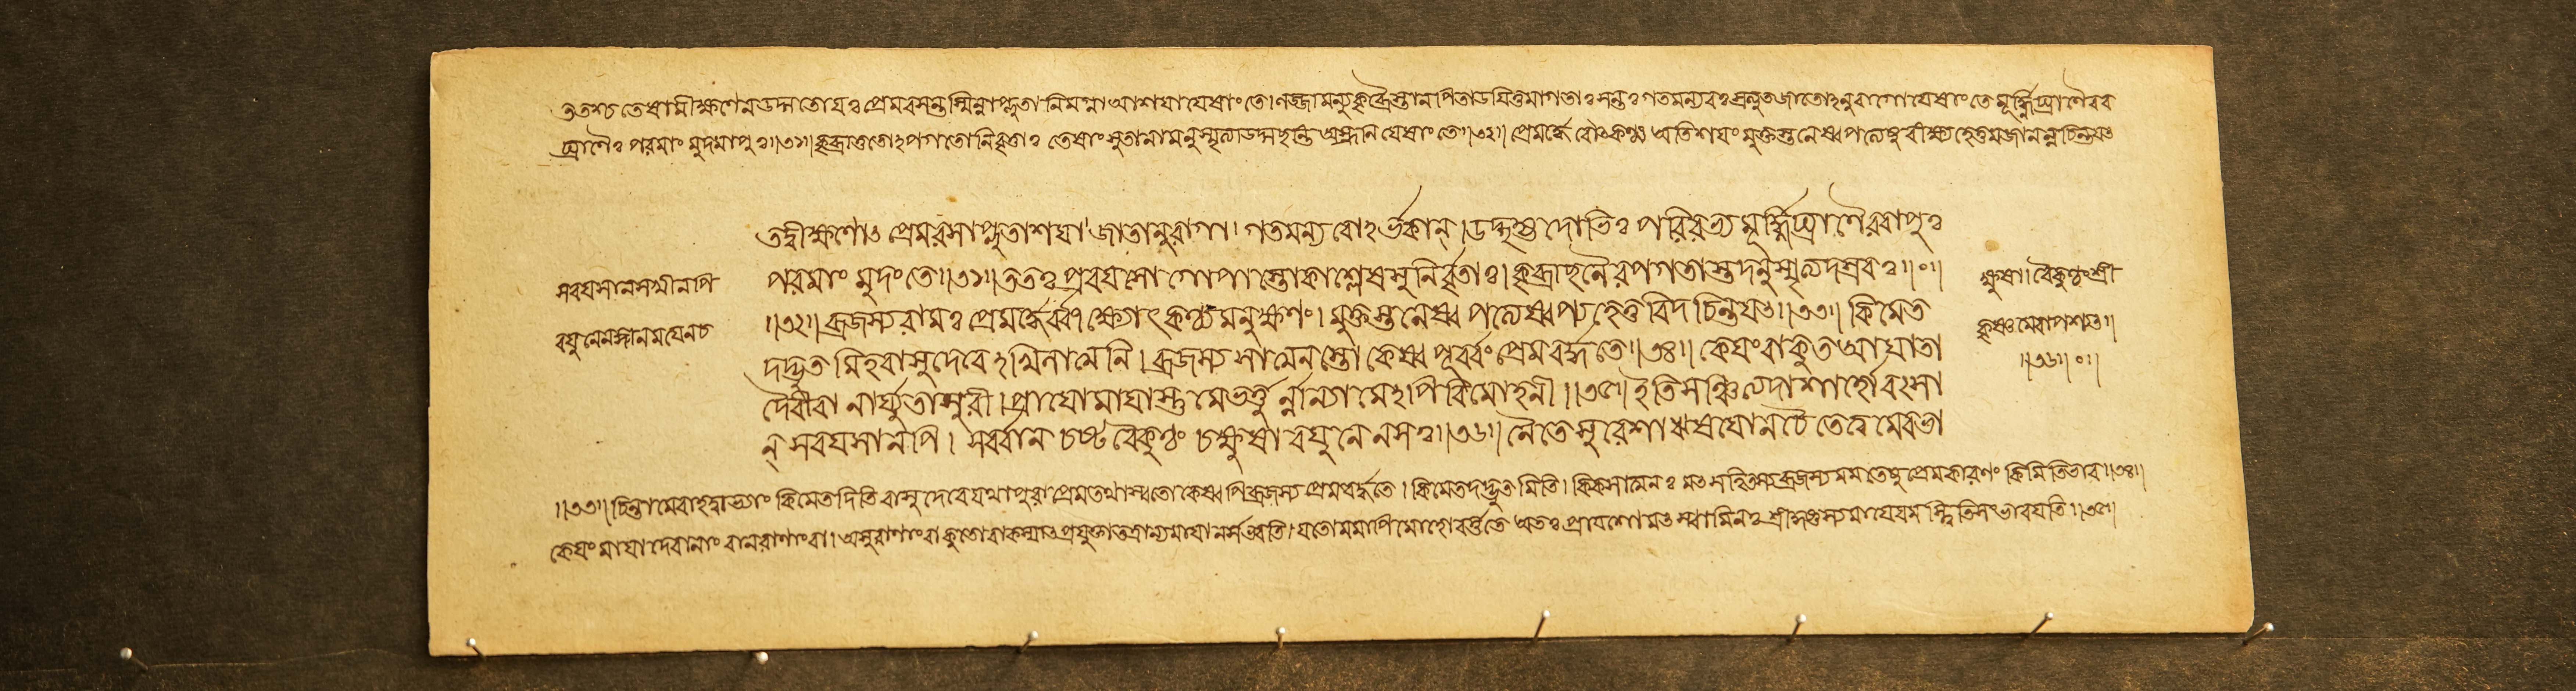 ততশ্চ তেষামীক্ষণেনউদ্গতোযঃ প্রেমরসস্তস্মিন্নাপ্লুতা নিমগ্না আশয়া যেষাং তে। লজ্জামন্যুকৃচ্ছ্রৈস্তান পিতাডয়িতুমাগতাঃ সন্তঃ গতমন্যবঃ প্রত্যুতজাতোঽনুরাগো যেষাং তে মূর্দ্ধ্নিঘ্রাণৈরব
ঘ্রাণৈঃ পরমাং মুদমাপুঃ।।৩১।। কৃচ্ছ্রাত্ততোঽপগতো নিবৃত্তাঃ তেষাং সুতানামনুস্মৃত্যাউদ্গচ্ছন্তি অশ্রূনি যেষাং তে।।৩২।। প্রেমর্দ্ধের্বৌৎকণ্ঠ্যং অতিশয়ং মুক্তস্তনেষ্বপত্যেষু বীক্ষ্য হেতুমজানন্নচিন্তয়ৎ
তদ্বীক্ষণোৎ প্রেমরসাপ্লুতাশয়া জাতানুরাগা। গতমন্যবোঽর্ভকান্। উদুহ্য দোর্ভিঃ পরিরভ্য মূর্দ্ধ্নিঘ্রাণৈরবাপুঃ
পরমাং মুদং তে।।৩১।। ততঃ প্রবয়সো গোপাস্তোকাশ্লেষসুনির্বৃতাঃ। কৃচ্ছ্রাচ্ছনৈরপগতাস্তদনুস্মৃত্যুদশ্রবঃ।।০।।
।।৩২।। ব্রজস্য রামঃ প্রেমর্দ্ধের্বীক্ষ্যৌৎকণ্ঠ্যমনুক্ষণং। মুক্তস্তনেষ্বপত্যেষ্বপ্যহেতুবিদচিন্তয়ৎ।।৩৩।। কিমেত
দদ্ভুতমিহ বাসুদেবেঽখিলাত্মনি। ব্রজস্য সাত্মনস্তোকেষ্বপূর্ব্বং প্রেমবর্দ্ধতে।।৩৪।। কেয়ং বা কুত আয়াতা
দৈবী বা নার্য্যুতাসুরী। প্রায়ো মায়াস্তু মে ভর্ত্তুর্ন্নান্যা মেঽপি বিমোহনী।।৩৫।। ইতি সঞ্চিন্ত্য দাশার্হো বৎসা
ন্ সবয়সানপি। সর্ব্বানাচষ্ট বৈকুণ্ঠং চক্ষুষা বয়ুনেন সঃ।।৩৬।। নৈতে সুরেশা ঋষয়ো ন চৈতে ত্বমেব ভা
সবয়সানসখীনপি
বয়ুনেনজ্ঞানময়েনচ
ক্ষুষা। বৈকুণ্ঠং শ্রী
কৃষ্ণমেবাপশ্যৎ।।
।।৩৬।।০।।
।।৩৩।। চিন্তামেবাহ দ্বাভ্যাং কিমেতদিতি বাসুদেবে যথাপুরা প্রেম তথাস্বতোকেষ্বপি ব্রজস্য প্রেমবর্দ্ধতে। কিমেতদদ্ভুতমিতি। কিঞ্চ সাত্মনঃ মৎসহিতস্য ব্রজস্য মম তেষু প্রেমকারণং কিমিতিভাবঃ।।৩৪।।
কেয়ং মায়া দেবানাং বা নরাণাং বা। অসুরাণাং বা কুতো বা কস্মাৎ প্রযুক্তা তত্রান্যমায়া ন সংভবতি। যতো মমাপি মোহো বর্ত্ততে অতঃ প্রায়শো মৎস্বামিনঃ শ্রীকৃষ্ণস্য মায়েয়মস্ত্বিতি সংভাবয়তি।।৩৫।।